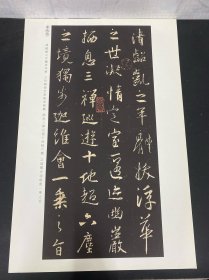 清齠齔之年體拔浮華
之世凝情定室匿迹幽巖
栖息三禪巡遊十地超六塵
之境獨步迦維會一乘之旨